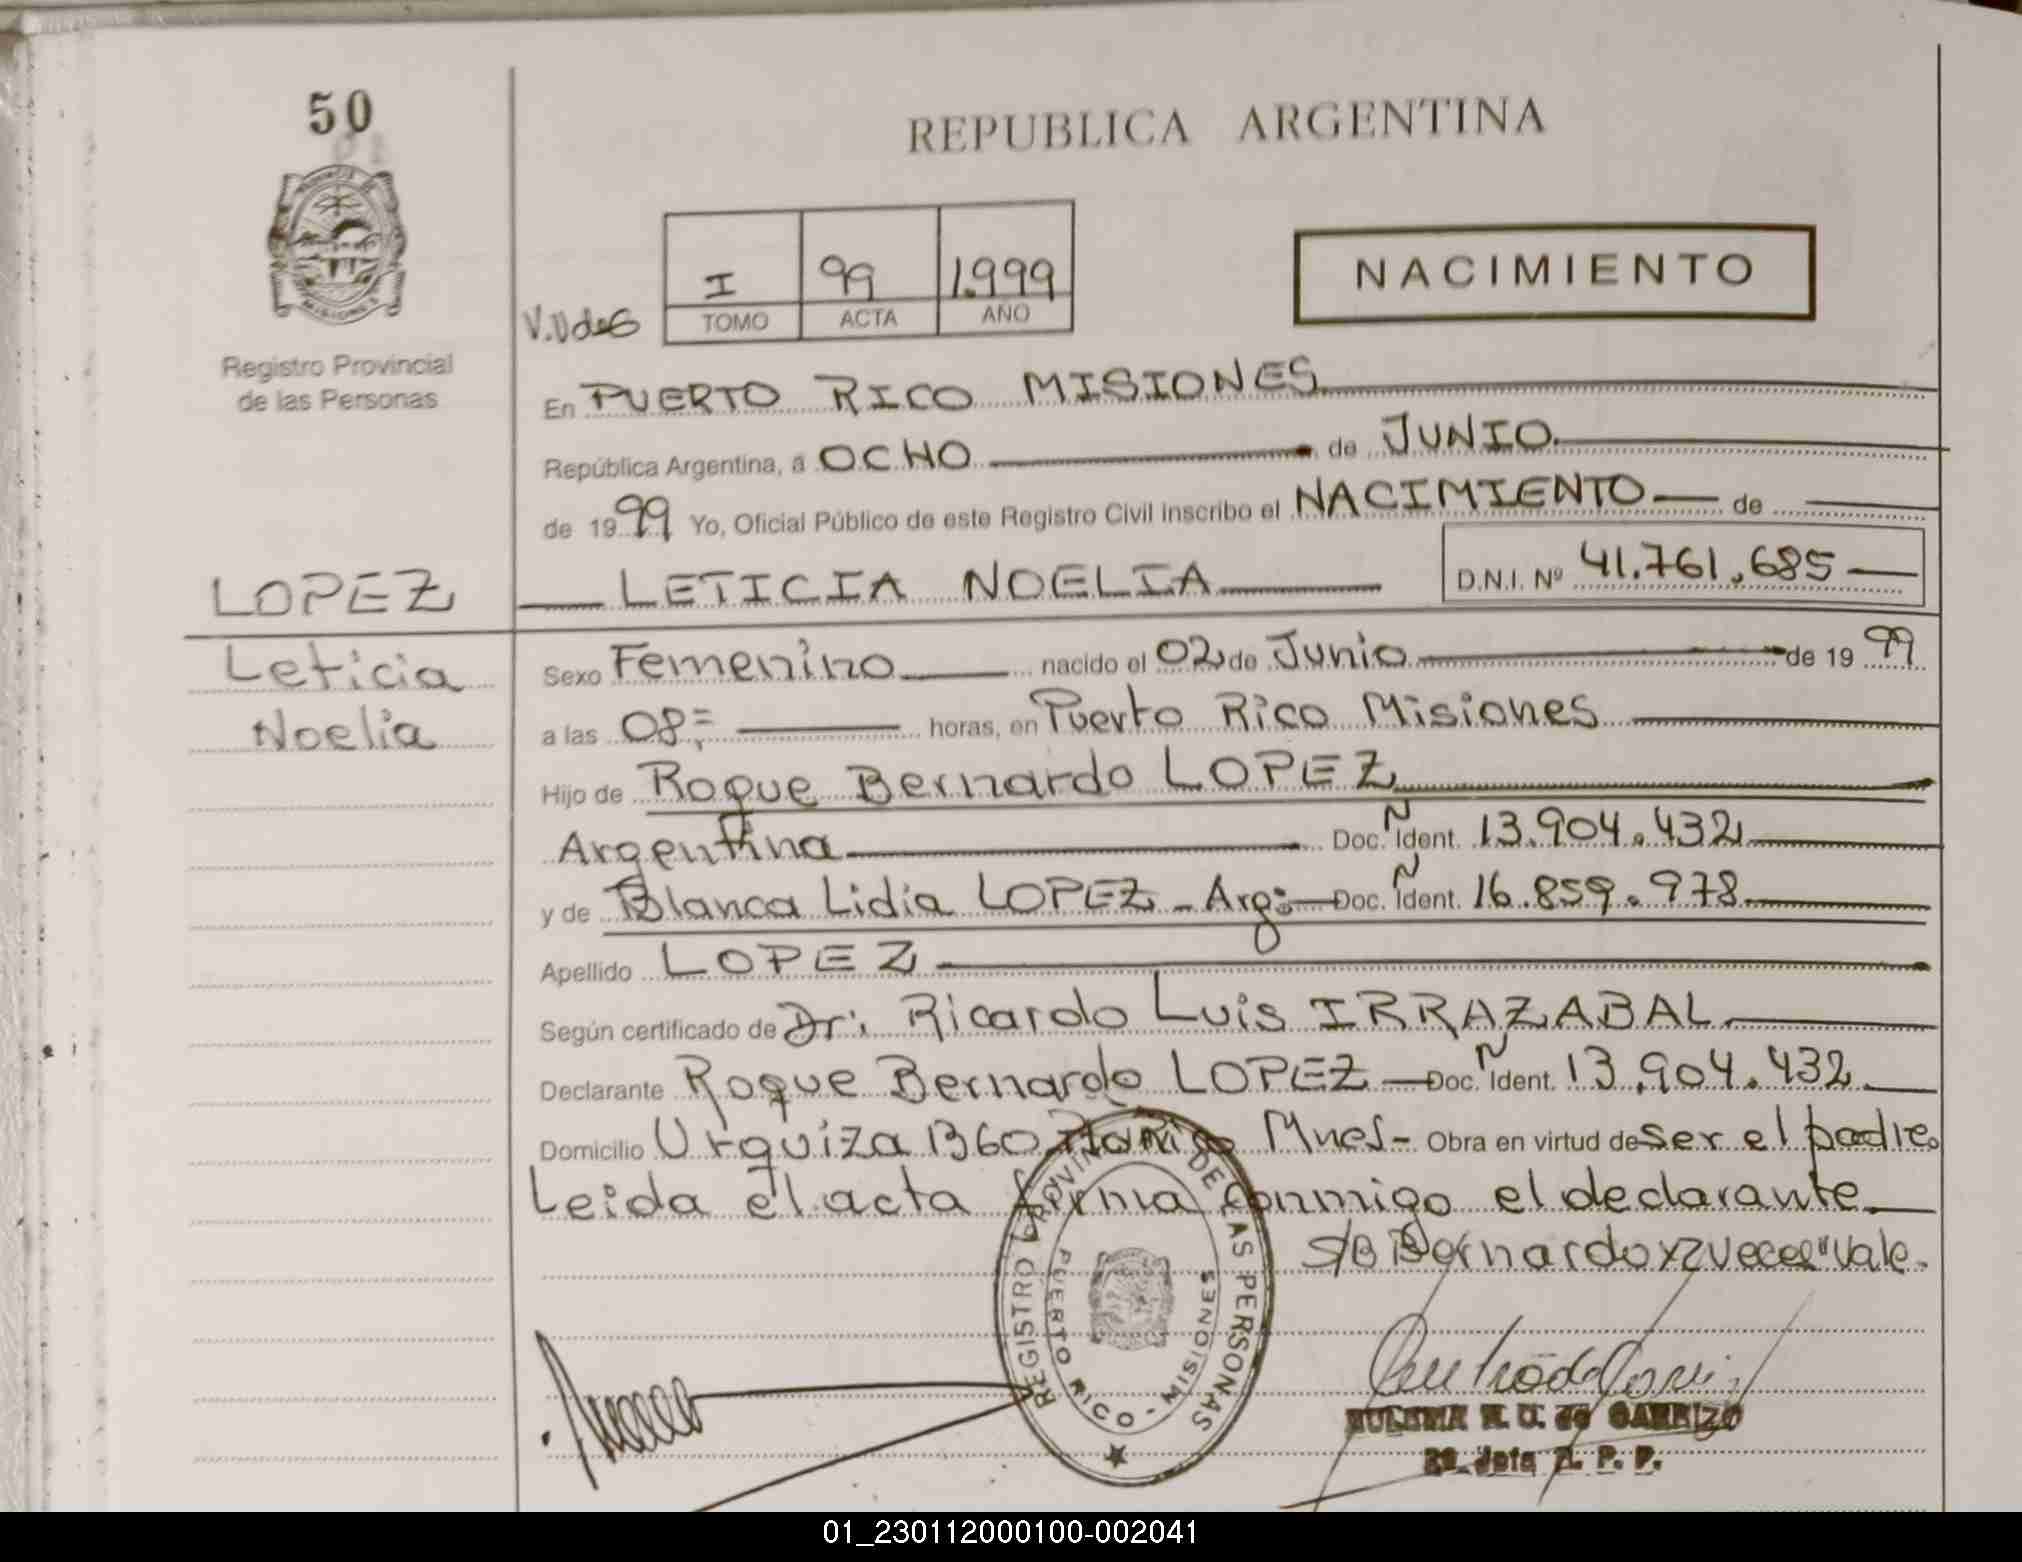 50
REPUBLICA ARGENTINA
I 99 1.999
TOMO ACTA AÑO
NACIMIENTO
Registro Provincial
de las Personas
En PUERTO RICO MISIONES
República Argentina, a OCHO de JUNIO
de 1999 Yo, Oficial Público de este Registro Civil inscribo el NACIMIENTO de
LOPEZ
LETICIA NOELIA D.N.I. Nº 41.761.685
Leticia
Noelia
Sexo Femenino nacido el 02 de Junio de 1999
a las 08;= horas, en Puerto Rico Misiones
Hijo de Roque Bernardo LOPEZ
Argentina Doc. Ñ Ident. 13.904.432
y de Blanca Lidia LOPEZ - Arg: Doc. Ñ Ident. 16.859.978
Apellido LOPEZ
Según certificado de Dr: Ricardo Luis IRRAZABAL
Declarante Roque Bernardo LOPEZ Doc. Ñ Ident. 13.904.432
Domicilio Urquiza 1360 Mnes- Obra en virtud de ser el padre.
Leida el acta firma conmigo el declarante
S/B Bernardo x 2 veces "Vale.
REGISTRO PROVINCIAL DE LAS PERSONAS
PUERTO RICO - MISIONES
de
Jefe R. P. P.
01_230112000100-002041